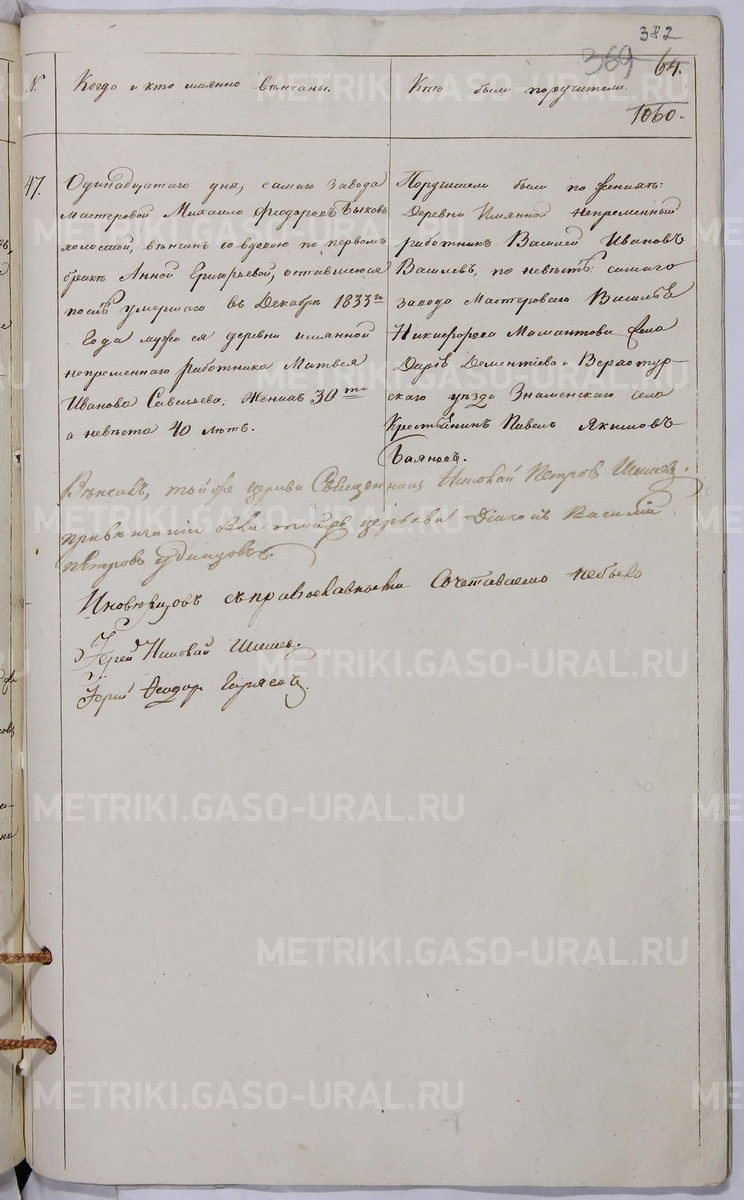 382
369 64.
N. Когда и кто имянно вѣнчаны.
Кто были поручители.
1060.
47.
Одинадцатаго дня, самаго завода
мастеровой Михайло Феодоровъ Быковъ
холостой, вѣнчанъ со вдовою по первомъ
бракѣ Анной Григорьевой, оставшеюся
послѣ умершаго въ Декабрѣ 1833го
Года мужа ея деревни имянной
непременнаго работника Матвея
Иванова Савельева; жениха 30ти
а невѣста 40 лѣтъ.
Поручители были по женихѣ:
Деревни Имянной непременный
работникъ Василей Ивановъ
Василевъ, по невѣстѣ: самаго
завода мастероваго Василья
Никифорова Мамантова
Дементіева и Верхотур-
скаго уѣзда Знаменскаго села
Крестьянинъ Павелъ Якимовъ
Баяновъ.
Вѣнчалъ, той же церкви Священникъ Николай Петровъ
при той же церкви Діаконъ Василій
Петровъ
Иновѣрцовъ съ православными Сочетаемо небыло
Іерей Николай
Іерей Феодор
METRIKI.GASO-URAL.RU